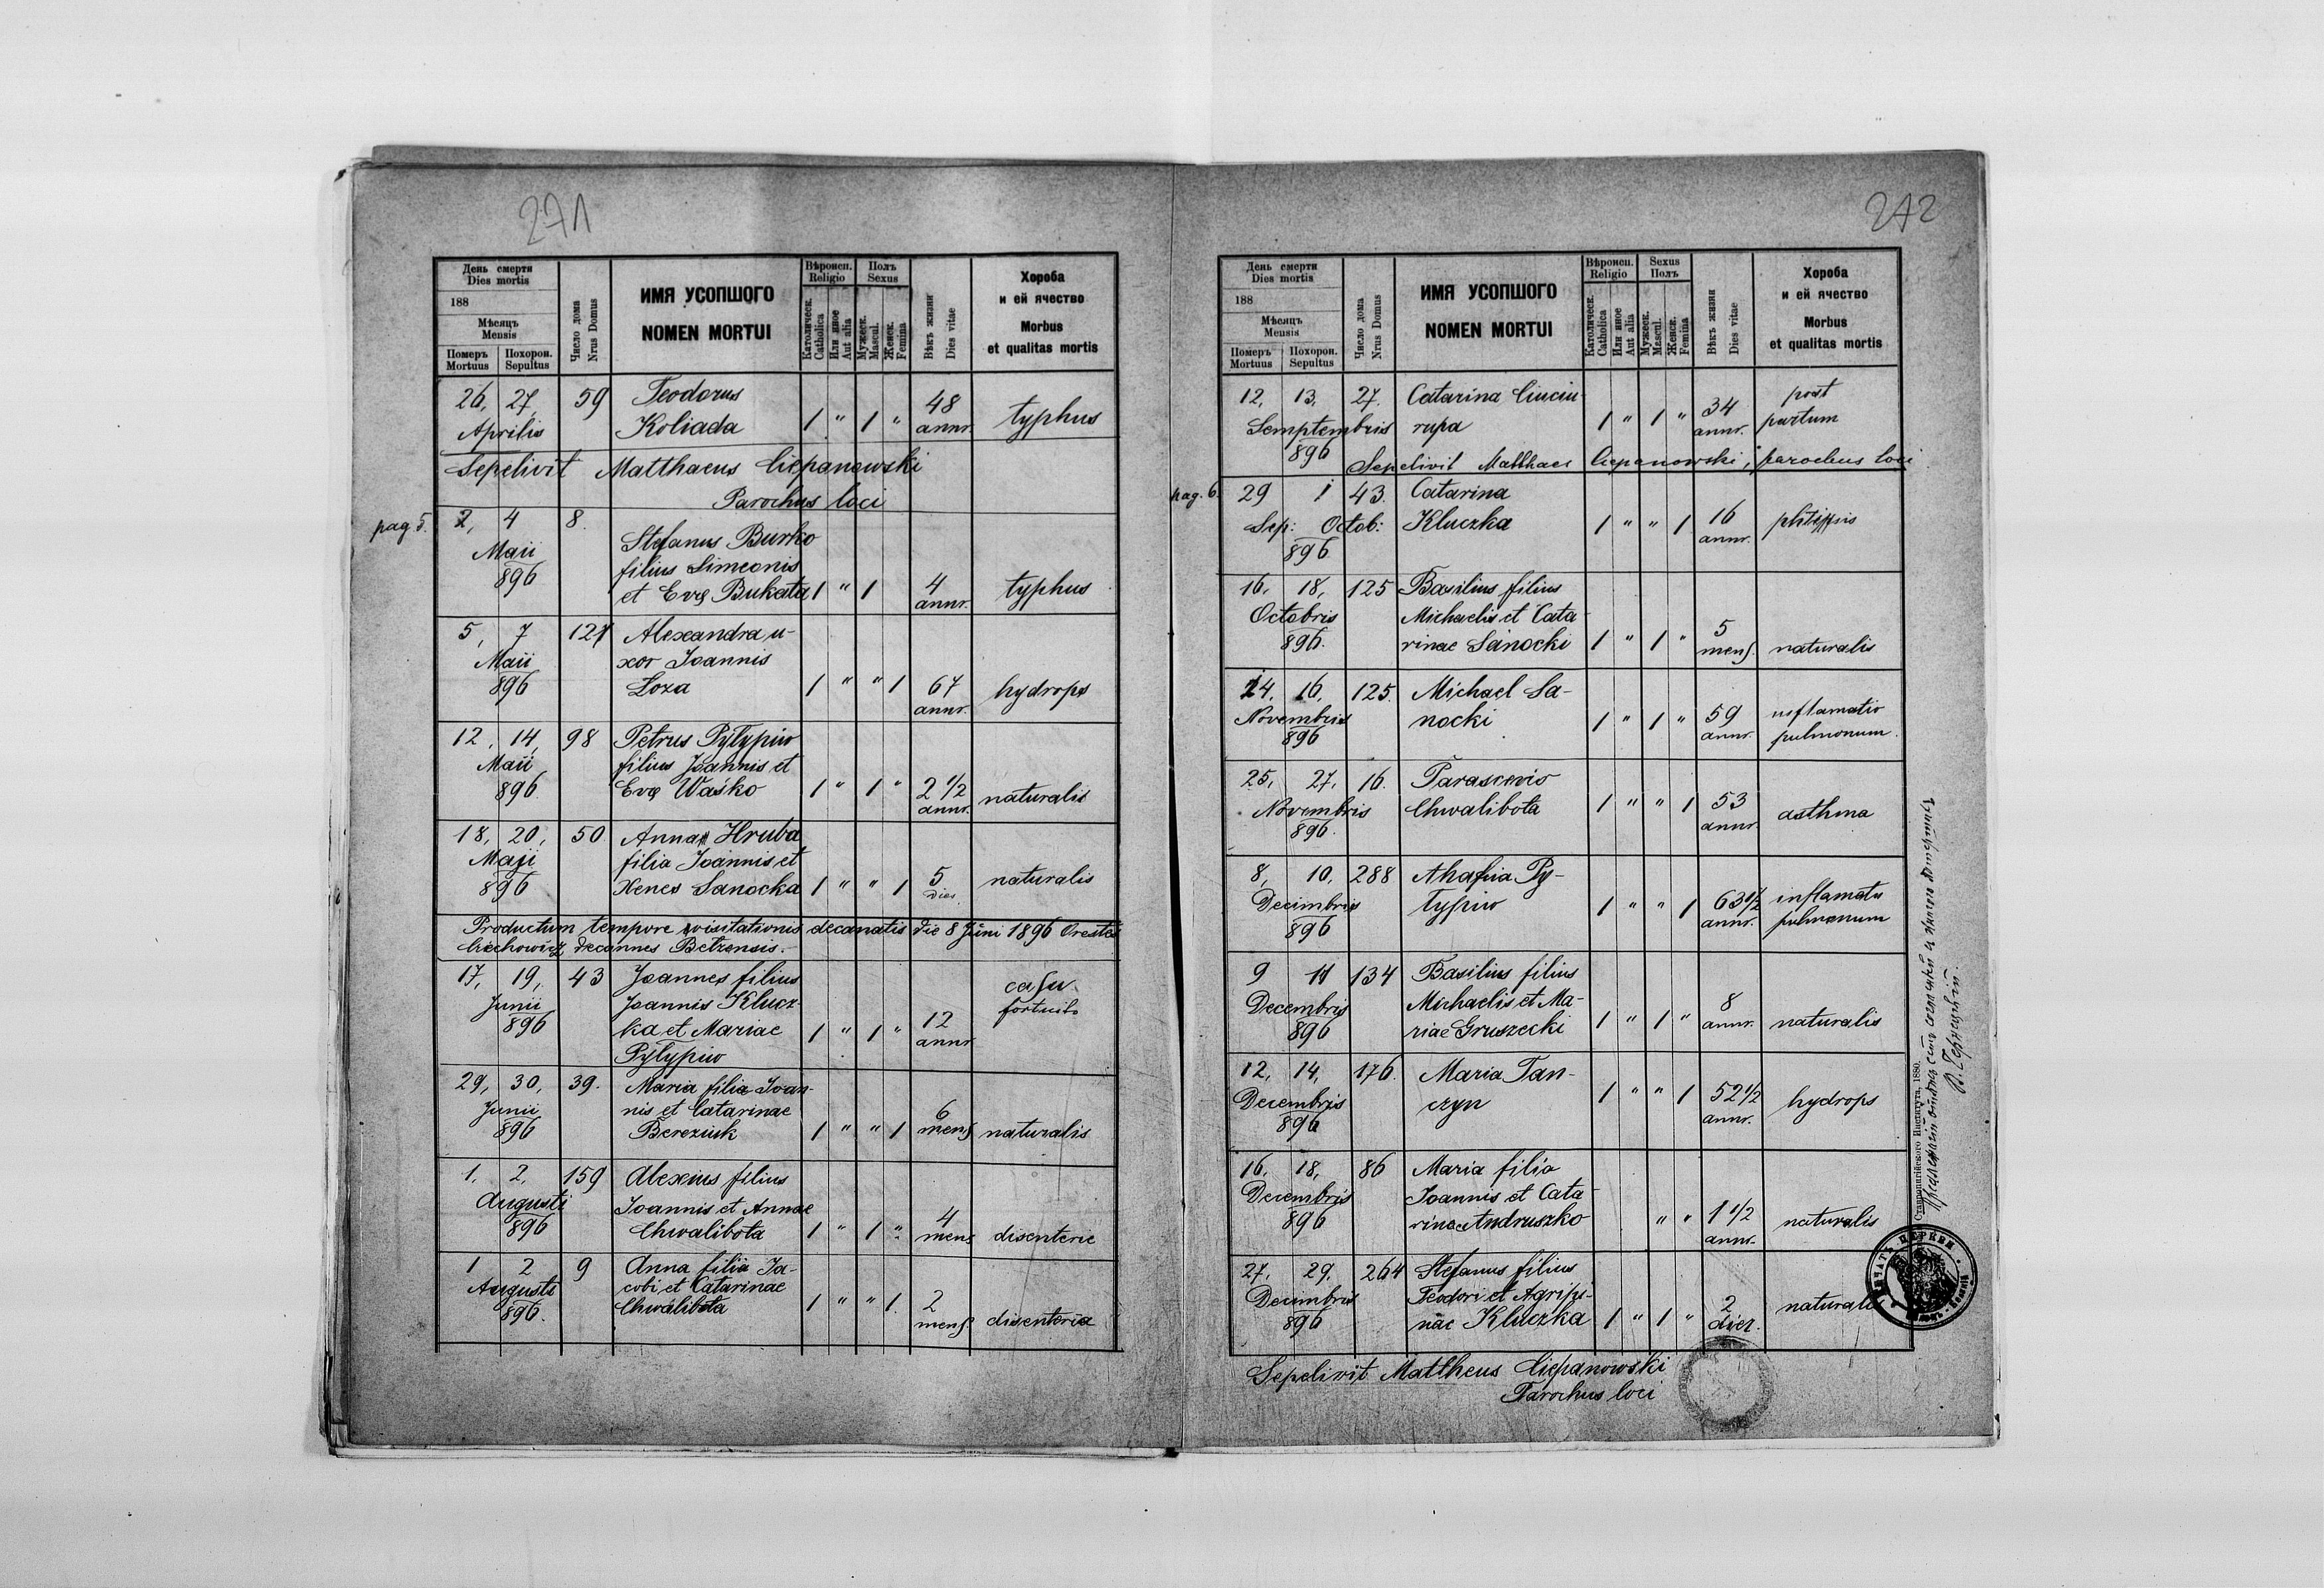 271
День смерти
Dies mortis
188
Мѣсяцъ
Mensis
Померъ
Mortuus
Похорон.
Sepultus
Число дома
Nrus Domus
ИМЯ УСОПШОГО
NOMEN MORTUI
Вѣроисп.
Religio
Католическ.
Catholica
Или иное
Aut alia
Полъ
Sexus
Мужеск.
Mascul.
Женск.
Femina
Вѣкъ жизни
Dies vitae
Хороба
и ей ячество
Morbus
et qualitas mortis
26, 27, 59 Teodorus 48
Aprilis Koliada 1 " 1 " annr. typhus
Sepelivit Matthaeus Ciepanowski
Parochus loci
pag. 5.
2, 4 8.
Maii Stefanus Burko
896 filius Simeonis
et Evę Bukata 1 " 1 4 annr. typhus
5, 7 127 Alexandra u-
Maii xor Joannis
896 Łoza 1 " " 1 67 annr. hydrops
12, 14, 98 Petrus Pyłypiw
Maii filius Joannis et
896 Evę Waśko 1 " 1 " 2 1/2 annr. naturalis
18, 20, 50 Anna Hruba
Maji filia Joannis et
896 Xenes Sanocka 1 " " 1 5 dies naturalis
Productum tempore visitationis decanatis die 8 Juni 1896 Orestes
decannes Bełzensis.
17, 19, 43 Joannes filius casu
Junii Joannis Klucz- fortuito
896 ka et Mariae 1 " 1 " 12 annr
Pyłypiw
29, 30, 39. Maria filia Joan-
Junii nis et Catarinae
896 Bereziuk 1 " " 1 6 mens naturalis
1, 2, 159 Alexius filius
Augusti Joannis et Annae
896 Chwalibota 1 " 1 " 4 mens disenterie
1 2 9 Anna filia Ja-
Augusti cobi et Catarinae
896. Chwalibota 1 " " 1. 2 mens. disenteria
272
День смерти
Dies mortis
188
Мѣсяцъ
Mensis
Померъ
Mortuus
Похорон.
Sepultus
Число дома
Nrus Domus
ИМЯ УСОПШОГО
NOMEN MORTUI
Вѣроисп.
Religio
Католическ.
Catholica
Или иное
Aut alia
Sexus
Полъ
Мужеск.
Mascul.
Женск.
Femina
Вѣкъ жизни
Dies vitae
Хороба
и ей ячество
Morbus
et qualitas mortis
12, 13, 27. Catarina Ciuciu- post
Semptembris rupa 1 " 1 " 34 annr. partum
896 Sepelivit Matthaes Ciepanowski, parochus loci
pag. 6.
29 1 43. Catarina
Sep: Octob: Kluczka 1 " " 1 16 annr.
896
16, 18, 125 Basilius filius
Octobris Michaelis et Cata-
896. rinae Sanocki 1 " 1 " 5 mens. naturalis
14, 16, 125. Michael Sa-
Novembris nocki 1 " 1 " 59 annr. inflamatio
896 pulmonum.
25, 27, 16. Parascevia
Novembris Chwalibota 1 " " 1 53 annr asthma
896.
8, 10, 288 Ahafia Py-
Decimbris łypiw 1 " " 1 63 1/2 annr. inflamatu
896 pulmonum
9 11 134 Basilius filius
Decembris Michaelis et Ma-
896 riae Gruszecki 1 " 1 " 8 annr. naturalis
12, 14, 176. Maria Tan-
Decembris czyn 1 " " 1 52 1/2 annr. hydrops
896
16, 18, 86 Maria filia
Decembris Joannis et Cata-
896 rinae Andruszko " " 1 1/2 annr. naturalis
27, 29, 264 Stefanus filius
Decimbris Teodori et Agripi-
896 nae Kluczka 1 " 1 " 2 dier. naturalis
Sepelivit Mattheus Ciepanowski
Parochus loci
Ставропигійского Института, 1880.
ПЕЧАТЬ ЦЕРКВИ